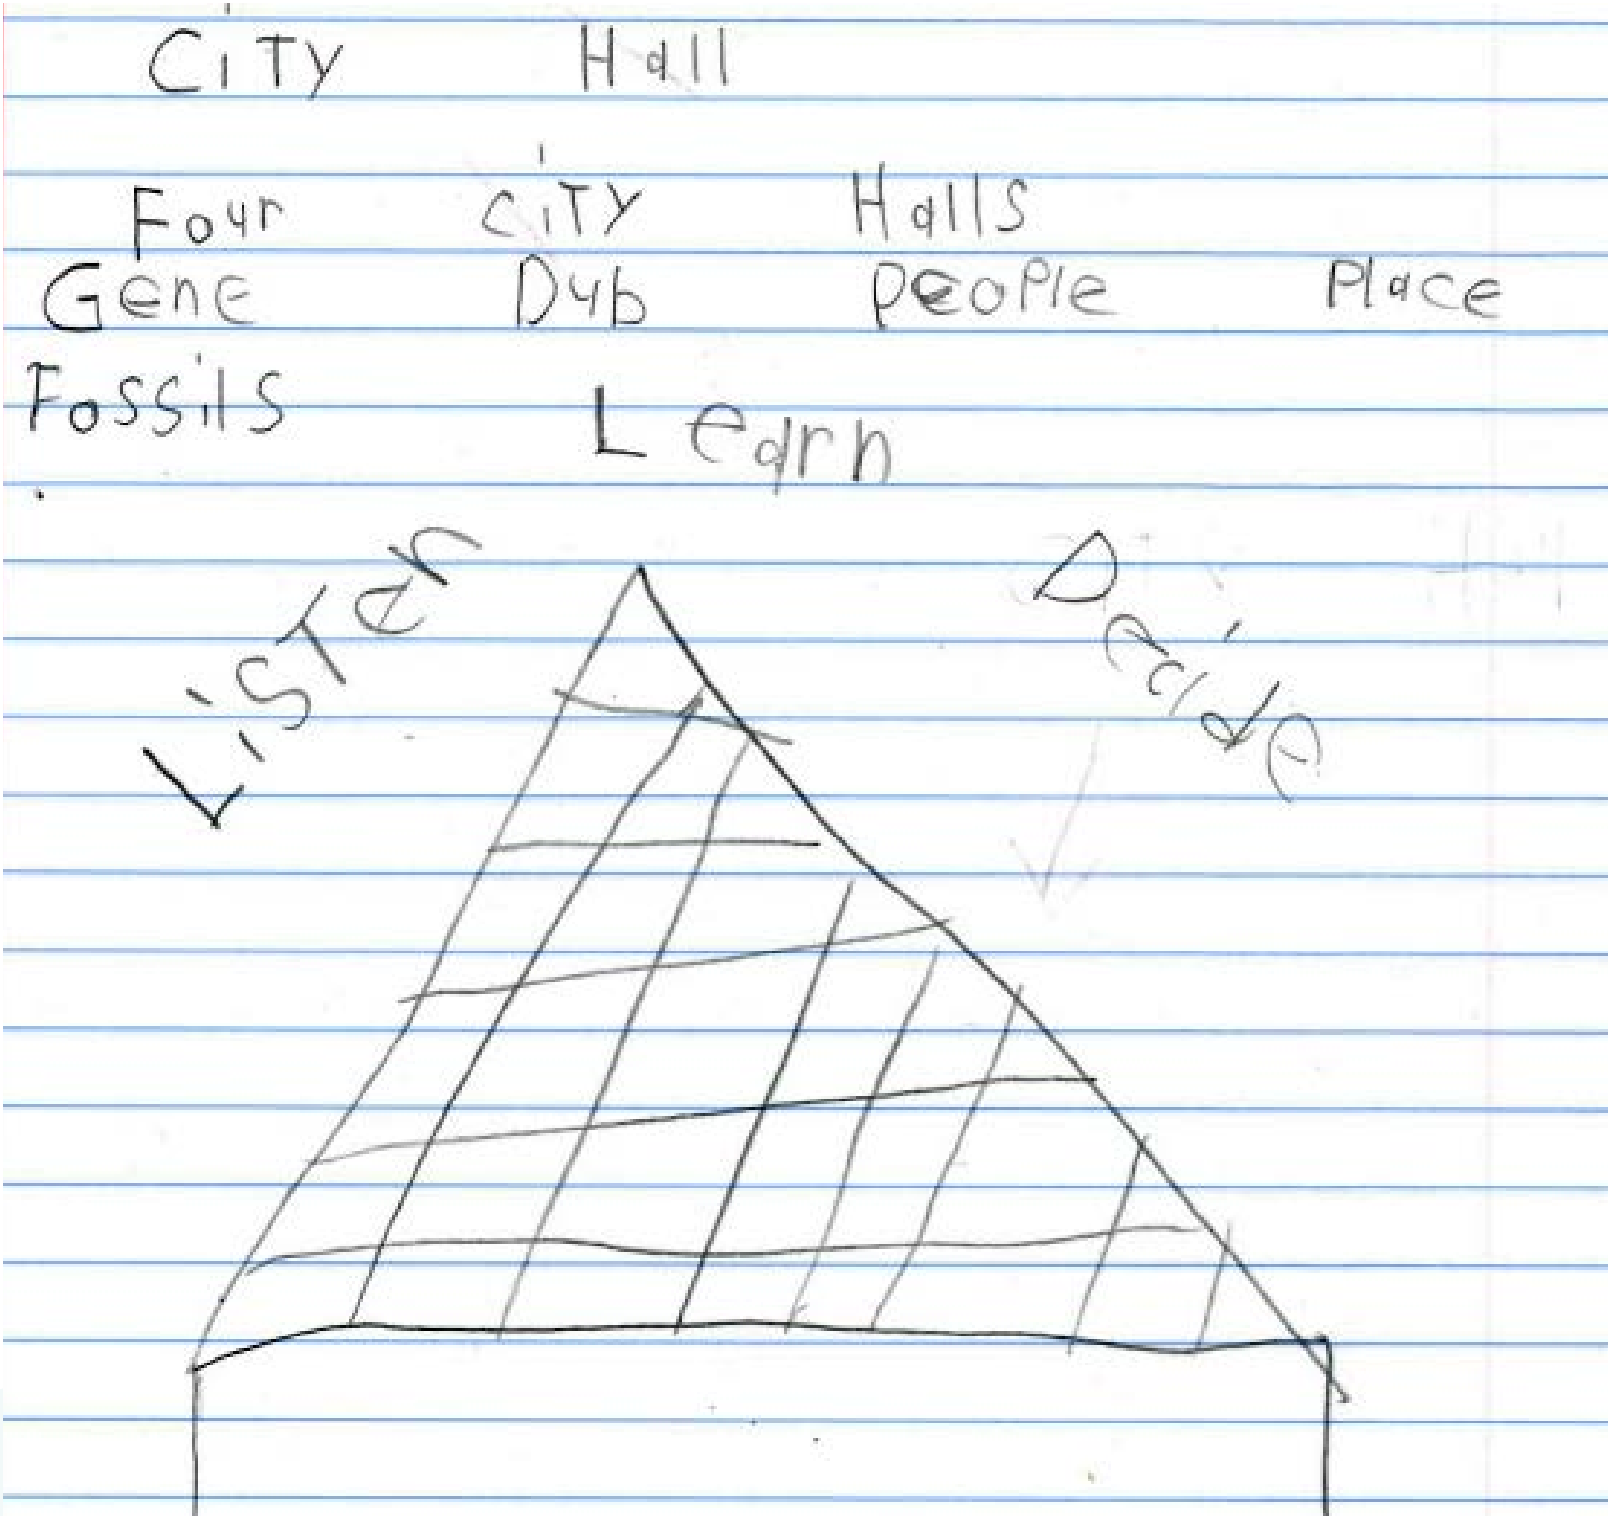 City Hall
Four city Halls
Gene Dub people Place
Fossils Learn
Listen
Decide